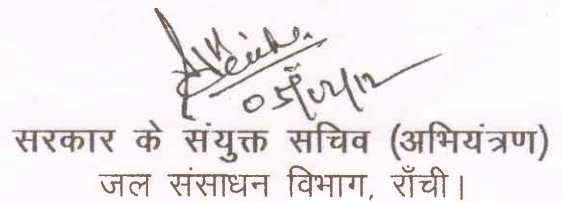 05/02/12
सरकार के संयुक्त सचिव (अभियंत्रण)
जल संसाधन विभाग, राँची।